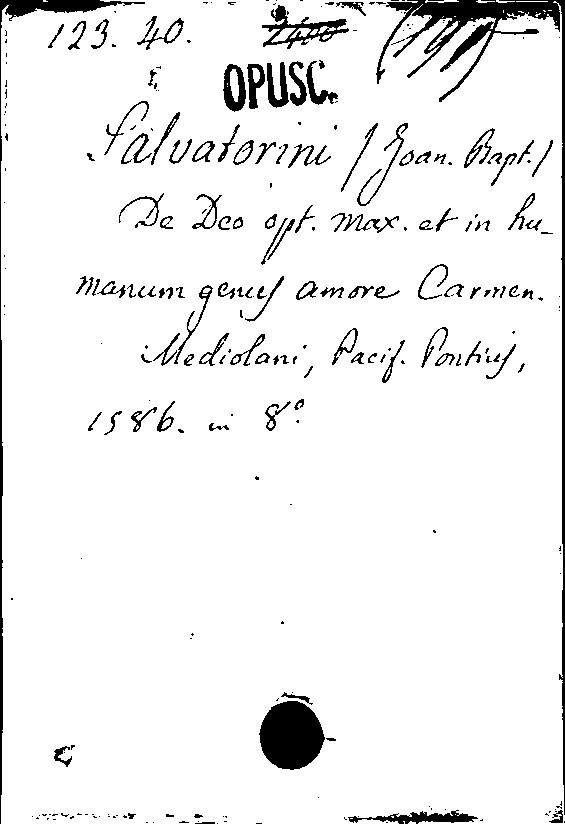 123. 40. 2400 (191)
OPUSC.
Salvatorini (Joan. Bapt.)
De Deo opt. max. et in hu-
manum genus amore Carmen.
Mediolani, Pacif. Pontius,
1586. in 8°